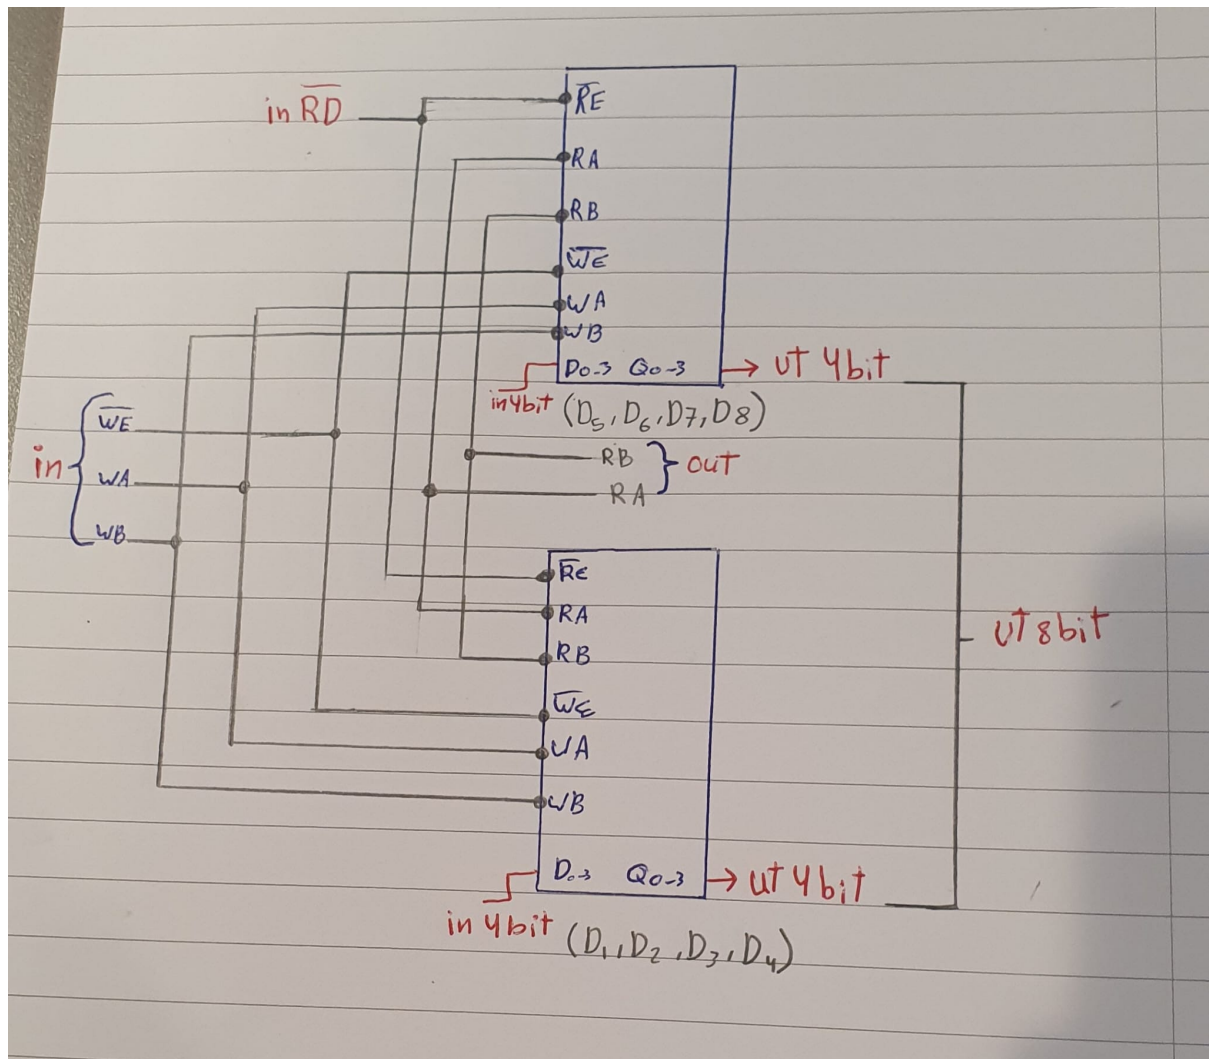 in R̅D̅
R̅E̅
RA
RB
W̅E̅
WA
WB
D0-3 Q0-3
ut 4bit
in 4bit
(D5, D6, D7, D8)
in
W̅E̅
WA
WB
RB
RA
out
R̅E̅
RA
RB
W̅E̅
WA
WB
D0-3 Q0-3
ut 4bit
in 4bit
(D1, D2, D3, D4)
ut 8bit